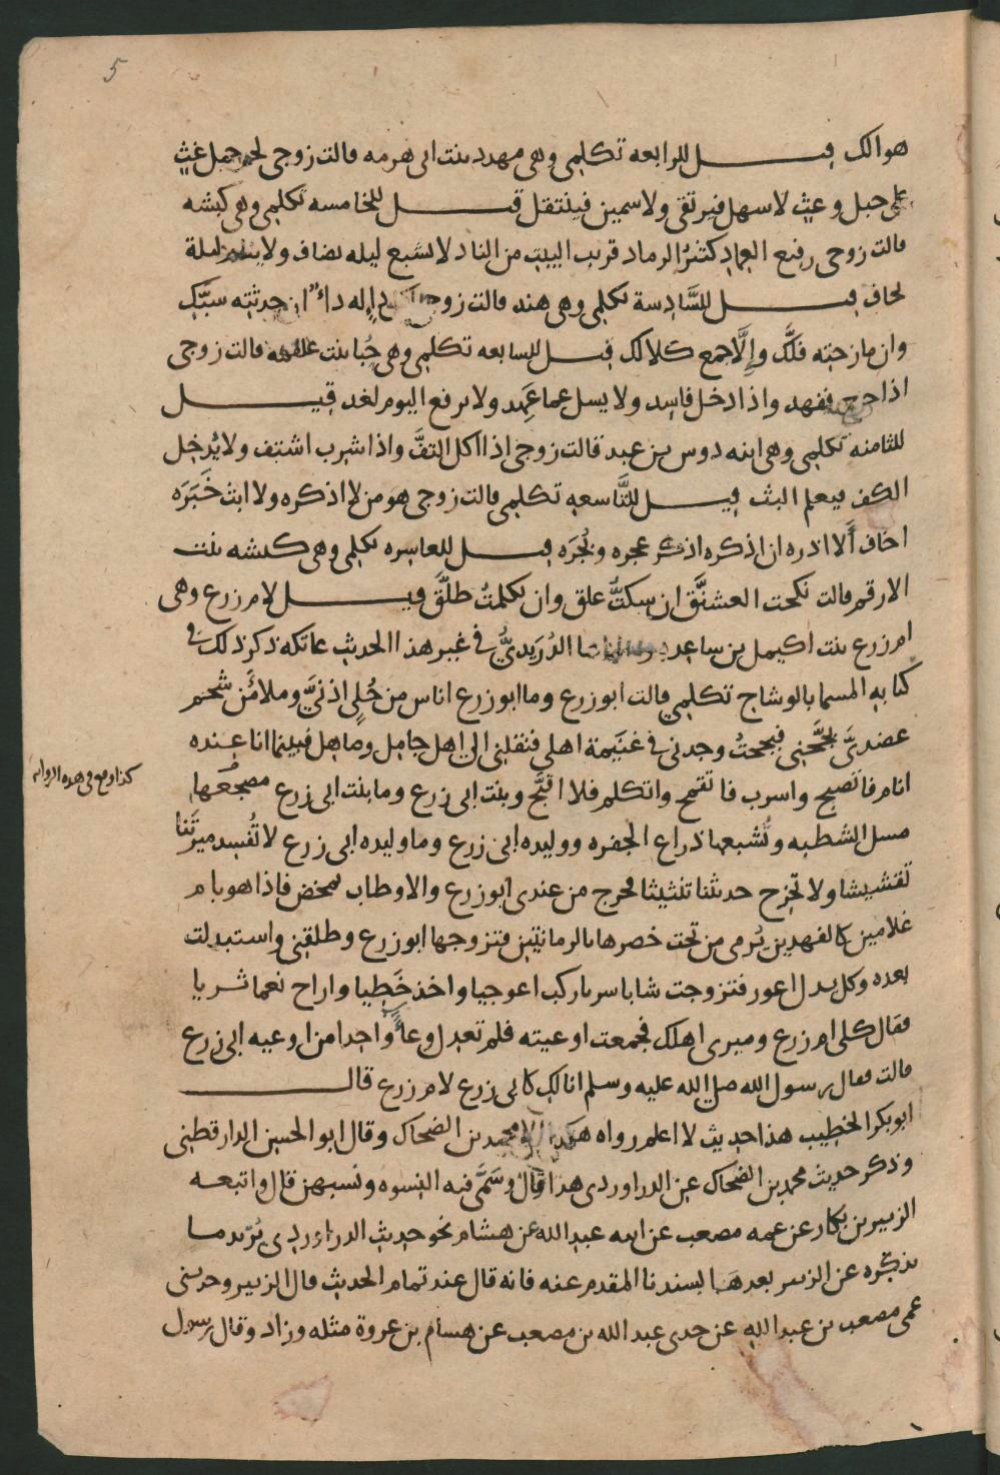 5
هوالك قيل للرابعه تكلمى وهى مهدد بنت ابى هرمه قالت زوجى لحم جمل غثٍ
على جبل وعث لا سهل فيرتقى ولا سمين فينتقل قيل للخامسه تكلمى وهى كبشه
قالت زوجى رفيع العماد كثيرُ الرماد قريب البيت من الناد لا يشبع ليله يضاف ولا ينام ليلة
يخاف قيل للسَّادسة تكلمى وهى هند قالت زوجى كل داءٍ له داءٌ ان حدثته سبَّك
وان مازحته فلَّك وإِلَّا جمع كلا لك قيل للسابعه تكلمى وهى حُبا بنت علقمه قالت زوجى
اذا خرج ففهد واذا دخل فاسد ولا يسل عما عَهد ولا يرفع اليوم لغد قيل
للثامنه تكلمى وهى ابنه دوس بن عبد قالت زوجى اذا اكل التفَّ واذا شرب اشتف ولا يُدخل
الكف فيعلم البث قيل للتَّاسعه تكلمى قالت زوجى هو من لا اذكره ولا ابث خَبَرَه
اخاف أَلا اذره ان اذكره اذكر عجره وبُجَرَه قيل للعاشره تكلمى وهى كبشه بنت
الارقم قالت نكحت العشنَّق ان سكتُّ علق وان تكلمتُ طلَّق قيل لام زرع وهى
ام زرع بنت اكيمل بن ساعد الدُرَيديُّ فى غير هذا الحديث عاتكه ذكر ذلك فى
كتابه المسما بالوشاح تكلمى قالت ابو زرع وما ابو زرع اناس من حُلى اذنىَّ وملا مَن شحم
عضدىَّ بجَّحنى فبجحتُ وجدنى فى غنَيمة اهلى فنقلنى الى اهل جامل وصاهل فبينما انا عنده
انام فاتصبح واشرب فاتقمح واتكلم فلا اقبَّح وبنت ابى زرع وما بنت ابى زرع مضجعُها
كذا وقع فى هذه الروايه
مسل الشطبه وتُشبعها ذراع الجفره ووليده ابى زرع وما وليده ابى زرع لا تُفسد ميرتَنا
تقشيشا ولا تخرج حديثنا تنثيثا فخرج من عندى ابو زرع والاوطاب تمخض فاذا هو بام
غلامين كالفهدين يُرمى من تحت خصرها بالرمانتين فتزوجها ابو زرع وطلقنى واستبدلت
بعده وكل بدل اعور فتزوجت شابا سريا ركب اعوجيا واخذ خَطيا واراح نعما ثريا
فقال كلى ام زرع وميرى اهلك فجمعت اوعيته فلم تعدل وعاءً واحدا من اوعيه ابى زرع
قالت فقال رسول الله صلى الله عليه وسلم انا لك كابى زرع لام زرع قال
ابو بكر الخطيب هذا حديث لا اعلم رواه هكذا الا محمد بن الضحاك وقال ابو الحسن الدارقطنى
وذكر حديث محمد بن الضحاك عن الدراوردى هذا قال وسَمَّى فيه النسوه ونسبهن قال واتبعه
الزبير بن بكار عن عمه مصعب عن ابيه عبد الله عن هشام نحو حديث الدراوردى يُريد ما
نذكره عن الزبير بعد هَذا بسندنا المقدم عنه فانه قال عند تمام الحديث قال الزبير وحدثنى
عمى مصعب بن عبد الله عن جدى عبد الله بن مصعب عن هشام بن عروة مثله وزاد وقال رسول